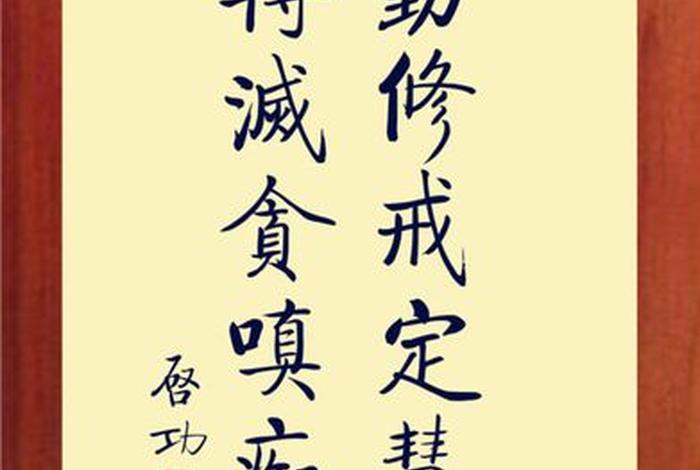 勤修戒定慧
得滅貪嗔痴
啓功